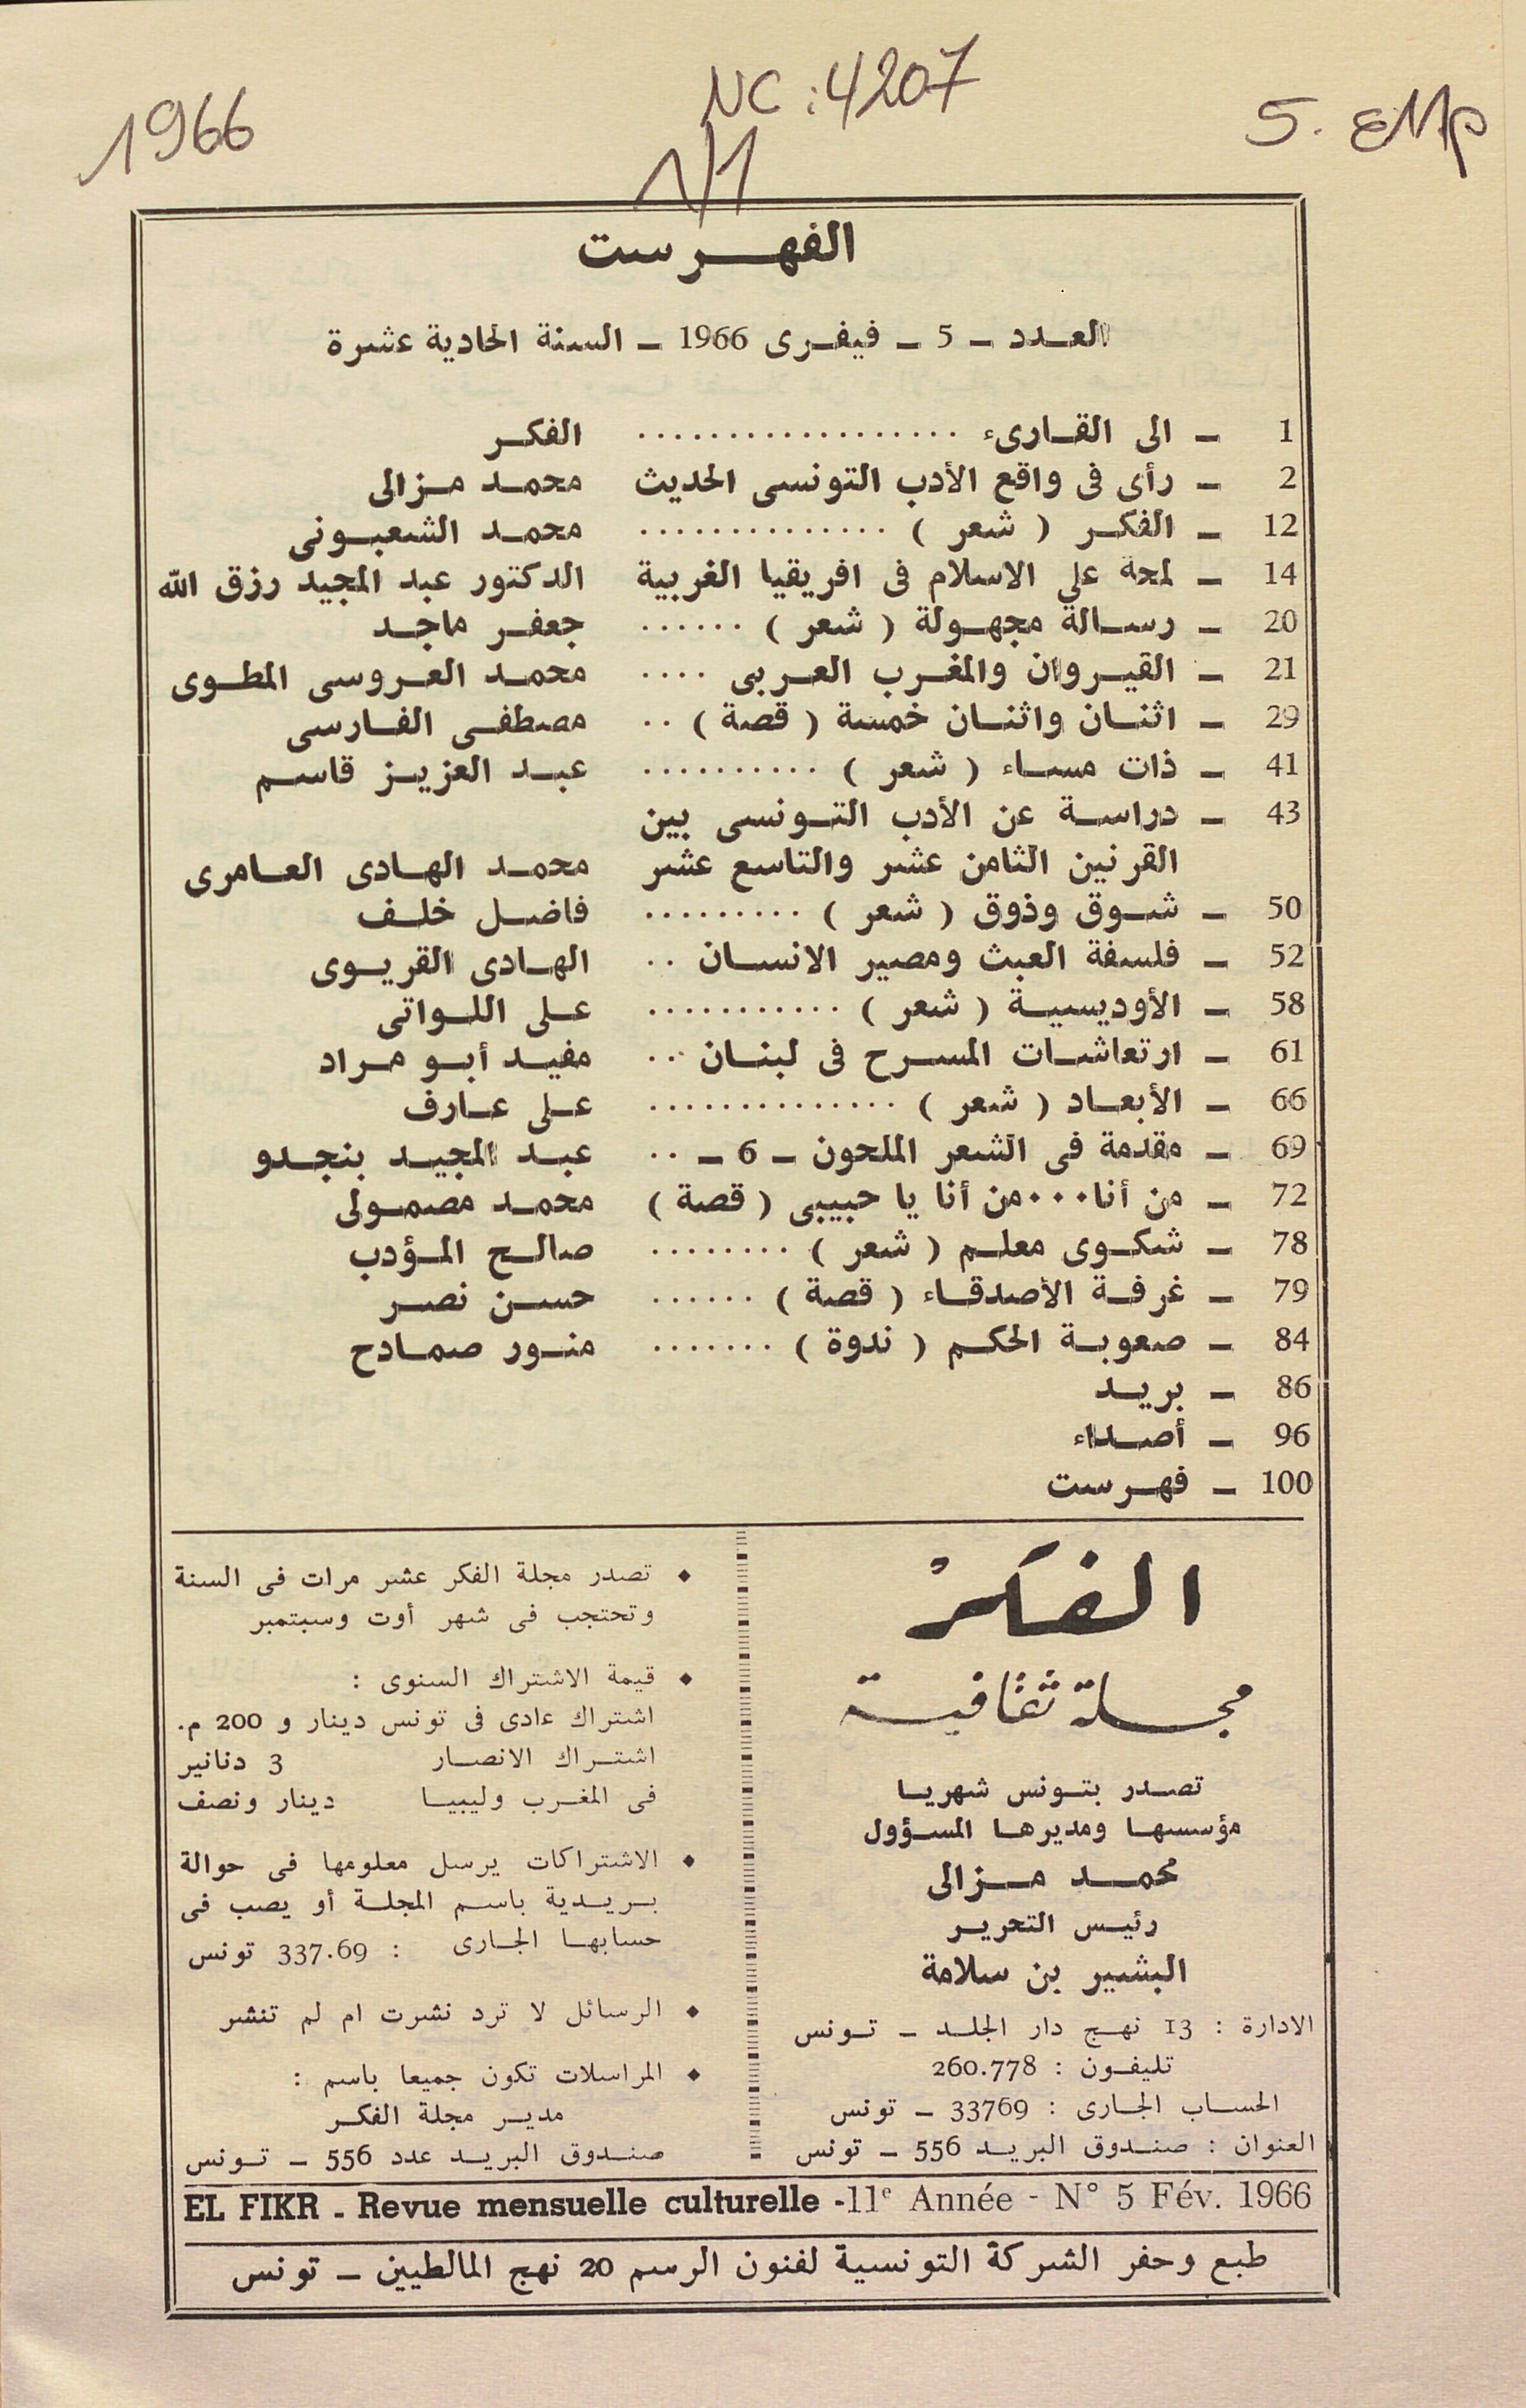 1966
NC : 4207
1/1
5. EMP
الفهرست
العدد ـ 5 ـ فيفرى 1966 ـ السنة الحادية عشرة
1 ـ الى القارىء .................. الفكر
2 ـ رأى فى واقع الأدب التونسى الحديث محمد مزالى
12 ـ الفكر ( شعر ) .............. محمد الشعبونى
14 ـ لمحة على الاسلام فى افريقيا الغربية الدكتور عبد المجيد رزق الله
20 ـ رسالة مجهولة ( شعر ) ...... جعفر ماجد
21 ـ القيروان والمغرب العربى .... محمد العروسى المطوى
29 ـ اثنان واثنان خمسة ( قصة ) .. مصطفى الفارسى
41 ـ ذات مساء ( شعر ) .......... عبد العزيز قاسم
43 ـ دراسة عن الأدب التونسى بين
القرنين الثامن عشر والتاسع عشر محمد الهادى العامرى
50 ـ شوق وذوق ( شعر ) ......... فاضل خلف
52 ـ فلسفة العبث ومصير الانسان .. الهادى القريوى
58 ـ الأوديسية ( شعر ) ........... على اللواتى
61 ـ ارتعاشات المسرح فى لبنان .. مفيد أبو مراد
66 ـ الأبعاد ( شعر ) .............. على عارف
69 ـ مقدمة فى الشعر الملحون ـ 6 ـ .. عبد المجيد بنجدو
72 ـ من أنا...من أنا يا حبيبى ( قصة ) محمد مصمولى
78 ـ شكوى معلم ( شعر ) ........ صالح المؤدب
79 ـ غرفة الأصدقاء ( قصة ) ...... حسن نصر
84 ـ صعوبة الحكم ( ندوة ) ....... منور صمادح
86 ـ بريد
96 ـ أصداء
100 ـ فهرست
الفكر
مجلة ثقافية
تصدر بتونس شهريا
مؤسسها ومديرها المسؤول
محمد مزالى
رئيس التحرير
البشير بن سلامة
الادارة : 13 نهج دار الجلد ـ تونس
تليفون : 260.778
الحساب الجارى : 33769 ـ تونس
العنوان : صندوق البريد 556 ـ تونس
♦ تصدر مجلة الفكر عشر مرات فى السنة
وتحتجب فى شهر أوت وسبتمبر
♦ قيمة الاشتراك السنوى :
اشتراك عادى فى تونس دينار و 200 م.
اشتراك الانصار 3 دنانير
فى المغرب وليبيا دينار ونصف
♦ الاشتراكات يرسل معلومها فى حوالة
بريدية باسم المجلة أو يصب فى
حسابها الجارى : 337.69 تونس
♦ الرسائل لا ترد نشرت ام لم تنشر
♦ المراسلات تكون جميعا باسم :
مدير مجلة الفكر
صندوق البريد عدد 556 ـ تونس
EL FIKR - Revue mensuelle culturelle -11e Année - N° 5 Fév. 1966
طبع وحفر الشركة التونسية لفنون الرسم 20 نهج المالطيين ـ تونس